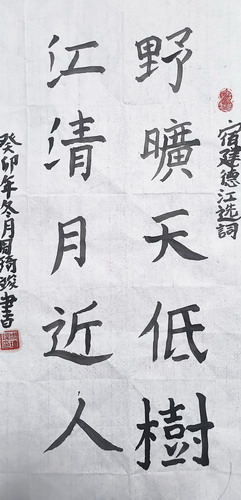 宿建德江选詞
野曠天低樹
江清月近人
癸卯年冬月周琦骏書